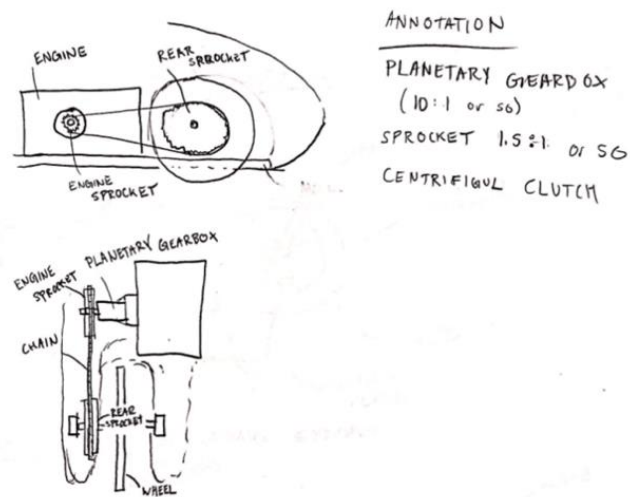 ENGINE
REAR
SPROCKET
ENGINE
SPROCKET
ANNOTATION
PLANETARY GEARBOX
(10:1 or SG)
SPROCKET 1.5:1 or SG
CENTRIFIGUL CLUTCH
PLANETARY GEARBOX
ENGINE
SPROCKET
CHAIN
REAR
SPROCKET
WHEEL